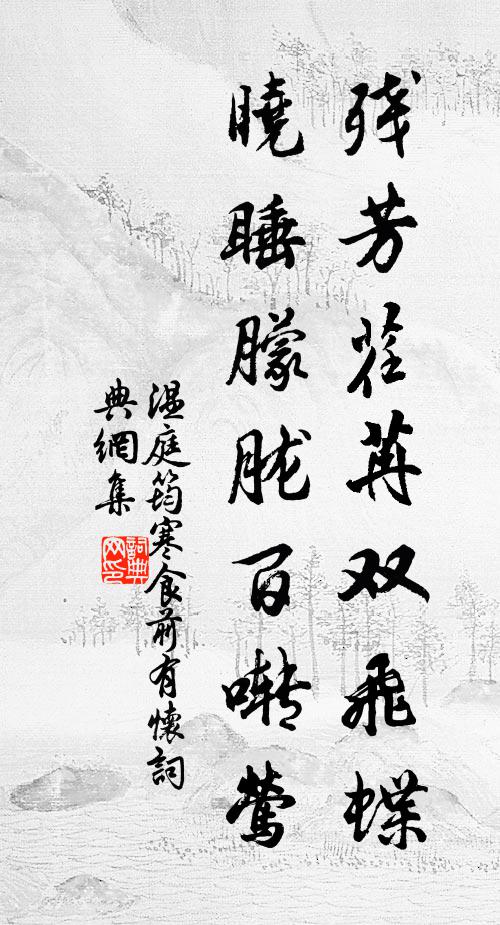 残芳荏苒双飞蝶
曉睡朦胧百啭莺
温庭筠寒食前有懷詞
典網集
詞典网印